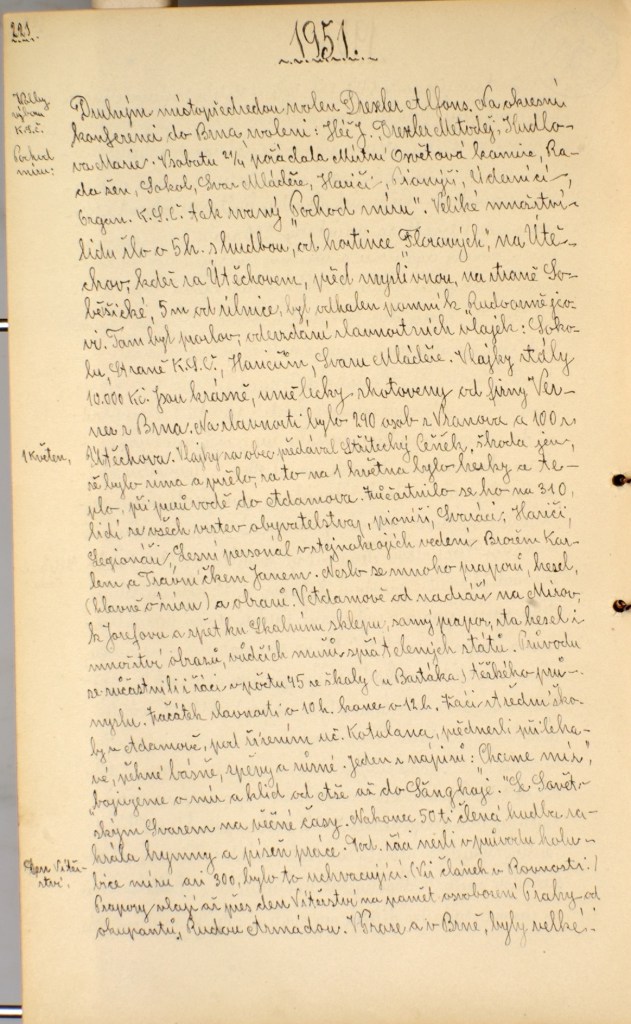 221
1951.
Volby
výboru
K.S.Č.
Pochod
míru:
Druhým místopředsedou zvolen Drexler Alfons. Na okresní
konferenci do Brna zvoleni: Héč J. Drexler Metoděj, Hudlo-
va Marie. V sobotu 21/4 pořádala Místní Osvětová komise, Ra-
da žen, Sokol, Svaz Mládeže, Hasiči, Pionýři, Úderníci,
Organ. K.S.Č. tak zvaný „Pochod míru". Veliké množství
lidu šlo o 5 h. s hudbou, od hostince „Florových", na Útě-
chov, kdež za Útěchovem, před myslivnou, na straně So-
běšické, 5 m od silnice, byl odhalen pomník „Rudoarmějco-
vi. Tam byl proslov, odevzdání slavnostních vlajek: Soko-
lu, Straně K.S.Č., Hasičům, Svazu Mládeže. Vlajky stály
10.000 Kč. Jsou krásně, umělecky zhotoveny od firmy Ver-
nes z Brna. Na slavnosti bylo 290 osob z Vranova a 100 z
1 Květen,
Útěchova. Vlajky za obec předával Střítecký Čeněk, škoda jen,
že bylo zima a pršelo, za to na 1 května bylo hezky a te-
plo, při průvodě do Adamova. Zúčastnilo se ho na 310,
lidí ze všech vrstev obyvatelstva, pionýři, Svazáci, Hasiči,
Legionáři, Lesní personal v stejnokrojích vedení Brožem Kar-
lem a Trávníčkem Janem. Neslo se mnoho praporů, hesel,
(hlavně o míru) a obrazů. V Adamově od nádraží na Mírov,
k Josefovu a zpět ku Skalnímu sklepu, samý prapor, sta hesel i
množství obrazů, vůdčích mužů spřátelených států. Průvodu
se zúčastnili i žáci v počtu 45 ze školy (u Bartáka) těžkého prů-
myslu. Začátek slavnosti o 10 h. konec v 12 h. Žáci střední ško-
ly z Adamově, pod řízením uč. Kotulana, přednesli přiléha-
vé, pěkné básně, zpěvy a různé. Jeden z nápisů: Chceme mír",
„bojujeme o mír a klid od Aše až do Šanghaje". "Se Sovět-
ským Svazem na věčné časy. Nakonec 50 ti členná hudba za-
hrála hymny a píseň práce. Pod. žáci nesli v průvodu holu-
Den Vítěz-
ství.
bice míru asi 300, bylo to uchvacující. (Viz článek v Rovnosti.)
Prapory vlají až přes den Vítězství na paměť osvobození Prahy od
okupantů, Rudou Armádou. V Praze a v Brně, byly velké: